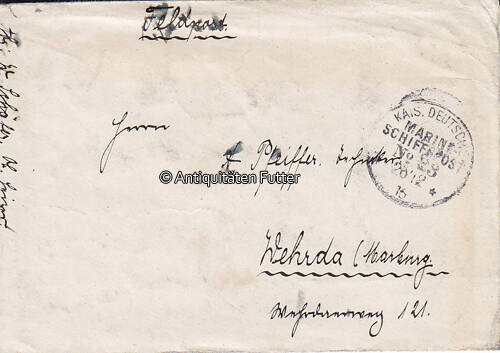 Feldpost.
KAIS. DEUTSCHE
MARINE
SCHIFFSPOST
No. 83
20/12
15 *
Herrn
Pfeiffer. Techniker
© Antiquitäten Futter
Wehrda (Marburg.
Wehrdaerweg 121.